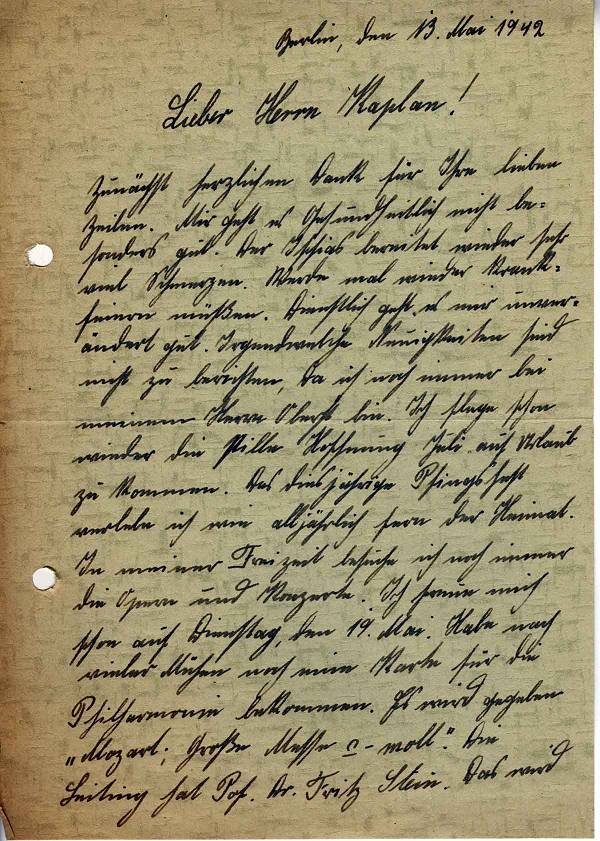 Berlin, den 13. Mai 1942
Lieber Herrn Kaplan!
Zunächst herzlichen Dank für Ihre lieben
Zeilen. Mir geht es Gesundheitlich nicht be-
sonders gut. Der Ischias bereitet wieder sehr
viel Schmerzen. Werde mal wieder krank-
feiern müßen. Dienstlich geht es mir unver-
ändert gut. Irgendwelche Neuigkeiten sind
nicht zu berichten, da ich noch immer bei
meinem Herrn Oberst bin. Ich hege schon
wieder die stille Hoffnung Juli auf Urlaub
zu kommen. Das diesjährige Pfingstfest
verlebe ich wie alljährlich fern der Heimat.
In meiner Freizeit besuche ich noch immer
die Opern und Konzerte. Ich freue mich
schon auf Dienstag, den 19. Mai. Habe nach
vieler Mühen noch eine Karte für die
Philharmonie bekommen. Es wird gegeben
„Mozart; Große Messe c-moll". Die
Leiting hat Pof. Dr. Fritz Stein. Das wird